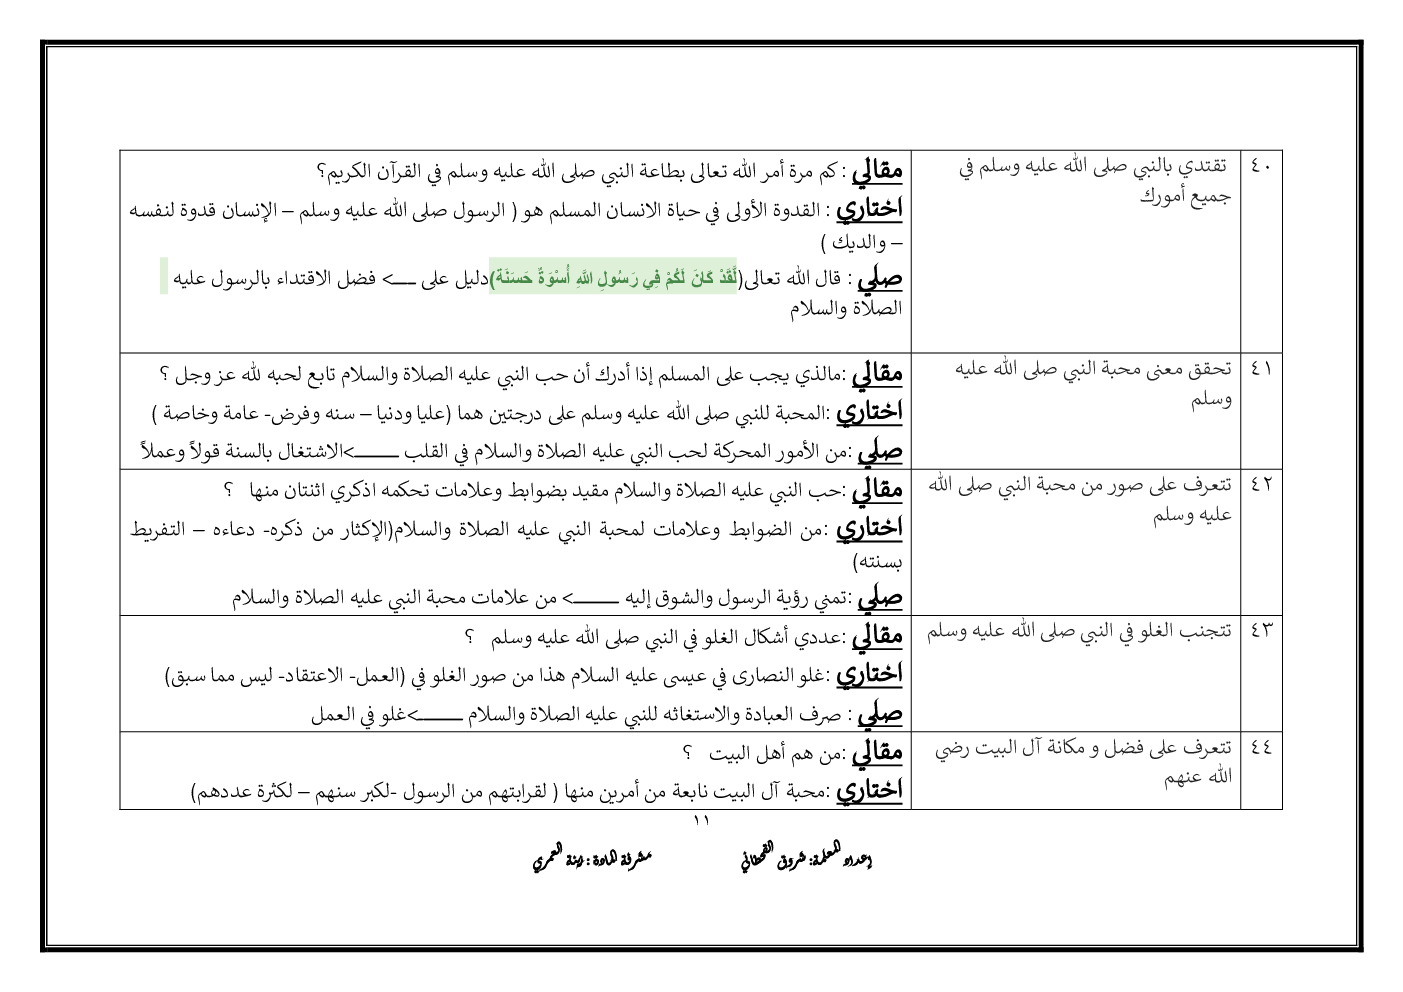 ٤٠
تقتدي بالنبي صلى الله عليه وسلم في
جميع أمورك
مقالي : كم مرة أمر الله تعالى بطاعة النبي صلى الله عليه وسلم في القرآن الكريم؟
اختاري : القدوة الأولى في حياة الانسان المسلم هو ( الرسول صلى الله عليه وسلم – الإنسان قدوة لنفسه
– والديك )
صلي : قال الله تعالى(لَّقَدْ كَانَ لَكُمْ فِي رَسُولِ اللَّهِ أُسْوَةٌ حَسَنَة)دليل على ـــــ> فضل الاقتداء بالرسول عليه
الصلاة والسلام
٤١
تحقق معنى محبة النبي صلى الله عليه
وسلم
مقالي :مالذي يجب على المسلم إذا أدرك أن حب النبي عليه الصلاة والسلام تابع لحبه لله عز وجل ؟
اختاري :المحبة للنبي صلى الله عليه وسلم على درجتين هما (عليا ودنيا – سنه وفرض- عامة وخاصة )
صلي :من الأمور المحركة لحب النبي عليه الصلاة والسلام في القلب ــــــــــ>الاشتغال بالسنة قولاً وعملاً
٤٢
تتعرف على صور من محبة النبي صلى الله
عليه وسلم
مقالي :حب النبي عليه الصلاة والسلام مقيد بضوابط وعلامات تحكمه اذكري اثنتان منها ؟
اختاري :من الضوابط وعلامات لمحبة النبي عليه الصلاة والسلام(الإكثار من ذكره- دعاءه – التفريط
بسنته)
صلي :تمني رؤية الرسول والشوق إليه ــــــــــ> من علامات محبة النبي عليه الصلاة والسلام
٤٣
تتجنب الغلو في النبي صلى الله عليه وسلم
مقالي :عددي أشكال الغلو في النبي صلى الله عليه وسلم ؟
اختاري :غلو النصارى في عيسى عليه السلام هذا من صور الغلو في (العمل- الاعتقاد- ليس مما سبق)
صلي : صرف العبادة والاستغاثه للنبي عليه الصلاة والسلام ــــــــــ>غلو في العمل
٤٤
تتعرف على فضل و مكانة آل البيت رضي
الله عنهم
مقالي :من هم أهل البيت ؟
اختاري :محبة آل البيت نابعة من أمرين منها ( لقرابتهم من الرسول -لكبر سنهم – لكثرة عددهم)
١١
إعداد المعلمة: شروق القحطاني مشرفة المادة : نبية العمري